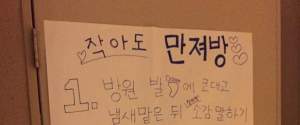 작아도 만져방
1. 방원 발에 코대고
냄새맡은 뒤 소감말하기